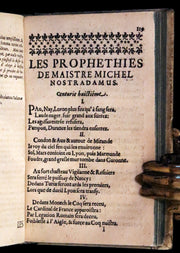 LES PROPHETIES
DE MAISTRE MICHEL
NOSTRADAMUS.
Centurie huictiéme.
I.
PAu, Nay, Loron plus feu qu'à sang sera,
Laude nager, fuir grand aux
Les entrée refusera,
Pampon, Durance les tiendra enserrez.
II.
Condon & Aux & autour de Mirande
Ie voy du ciel feu qui les environne:
Sol, Mars conioint au Lyon, puis Marmande
Foudre, grand gresle mur tombe dans Garonne.
III.
Au fort chasteau Vigilanne & Resuiers
Sera serré le puisnay de Nancy:
Dedans Turin seront ards les premiers,
Lors que de dueil Lyon sera transy.
IV.
Dedans Monech le Coq sera receu,
Le Cardinal de France apparoistra:
Par Legation Romain sera deceu,
Foiblesse à l'Aigle, & force au Coq naistra.